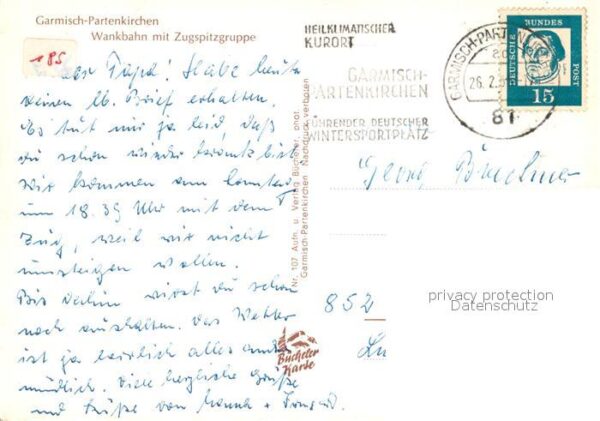 Garmisch-Partenkirchen
Wankbahn mit Zugspitzgruppe
185
Papa! Habe heute
deinen lb. Brief erhalten.
Es tut mir ja leid, daß
du schon wieder krank bist
Wir kommen am Sonntag
um 18.39 Uhr mit dem
Zug, weil wir nicht
umsteigen wollen.
Bis dahin wirst du schon
noch aushalten. Das Wetter
ist ja herrlich alles andere
mündlich. Viele herzliche Grüße
und Küsse von +
Nr. 107 Aufn. u. Verlag Bücheler, phot.
Garmisch-Partenkirchen Nachdruck verboten
HEILKLIMATISCHER
KURORT
GARMISCH-
PARTENKIRCHEN
FÜHRENDER DEUTSCHER
WINTERSPORTPLATZ
GARMISCH-PARTEN
26.2.
81
DEUTSCHE
BUNDES
POST
15
Georg
852
privacy protection
Datenschutz
Bücheler
Karte